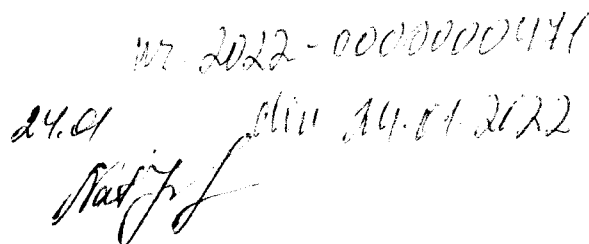 nr. 2022-0000000471
24.01 din 14.01.2022